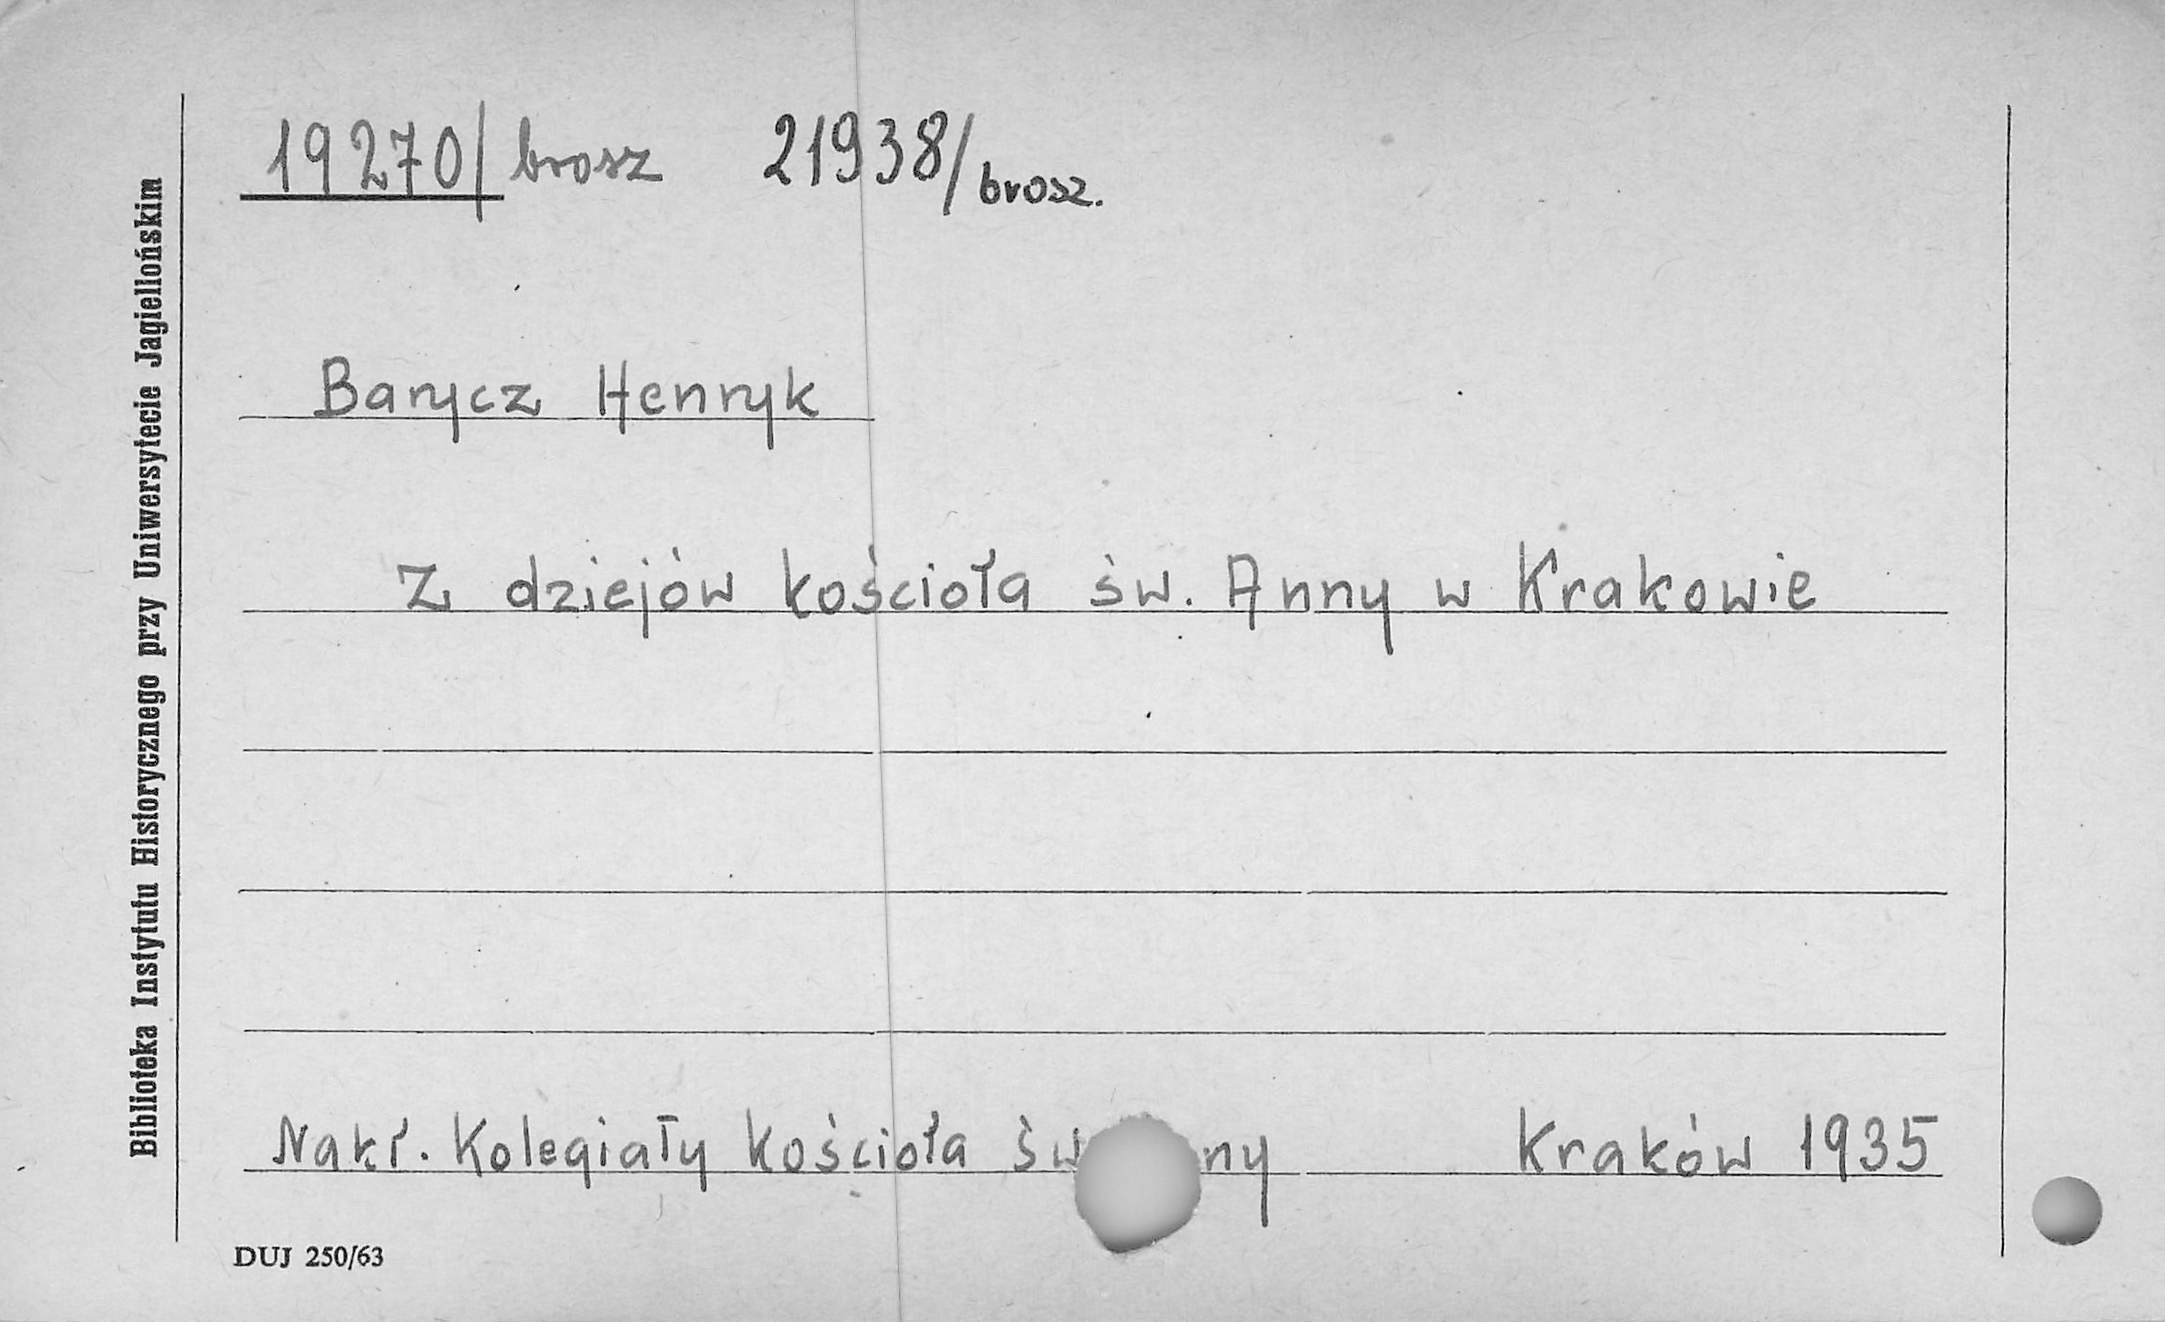 19270/brosz 21938/brosz.
Barycz Henryk
Z dziejów kościoła św. Anny w Krakowie
Nakł. Kolegiały kościoła św ny Kraków 1935
DUJ 250/63
Biblioteka Instytutu Historycznego przy Uniwersytecie Jagiellońskim